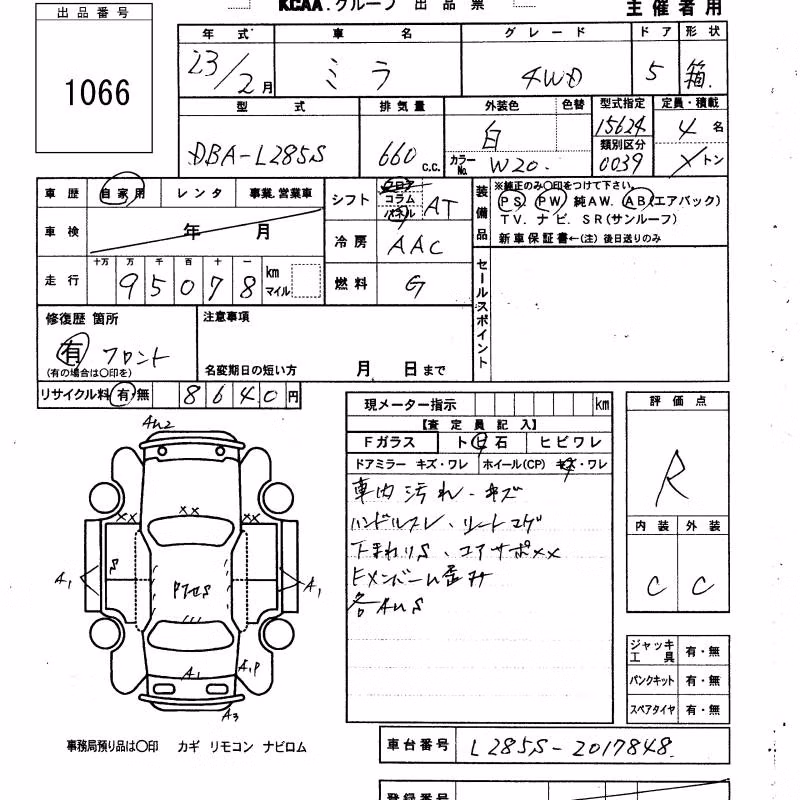 出品番号
1066
KCAA.グループ 出品票
主催者用
年式 車名 グレード ドア 形状
23/2月 ミラ 4WD 5 箱.
型式 排気量 外装色 色替 型式指定 定員・積載
DBA-L285S 660 c.c. 白 15624 4名
カラーNo. W20. 類別区分 0039 トン
車歴 自家用 レンタ 事業.営業車
車検 年 月
走行 十万 万 千 百 十 一
95078 km マイル
シフト フロア コラム パネル AT
冷房 AAC
燃料 G
装備品
※純正のみ○印をつけて下さい。
PS PW 純AW. AB(エアバック)
TV. ナビ. SR(サンルーフ)
新車保証書←(注) 後日送りのみ
セールスポイント
修復歴 箇所
有 フロント
(有の場合は○印を)
注意事項
名変期日の短い方 月 日まで
リサイクル料 有・無 8640円
現メーター指示 km
【査定員記入】
Fガラス ト ヒ 石 ヒビワレ
ドアミラー キズ・ワレ ホイール(CP) キズ・ワレ
車内汚れ・キズ
ハンドルスレ、シートコゲ
下まわりS、コアサポXX
Fメンバー歪み
各AUS
評価点
R
内装 外装
C C
ジャッキ 工具 有・無
パンクキット 有・無
スペアタイヤ 有・無
AU2
XX XX XX
S
A1 A1
A1 A1P
A3
事務局預り品は○印 カギ リモコン ナビロム
車台番号 L285S-2017848.
登録番号